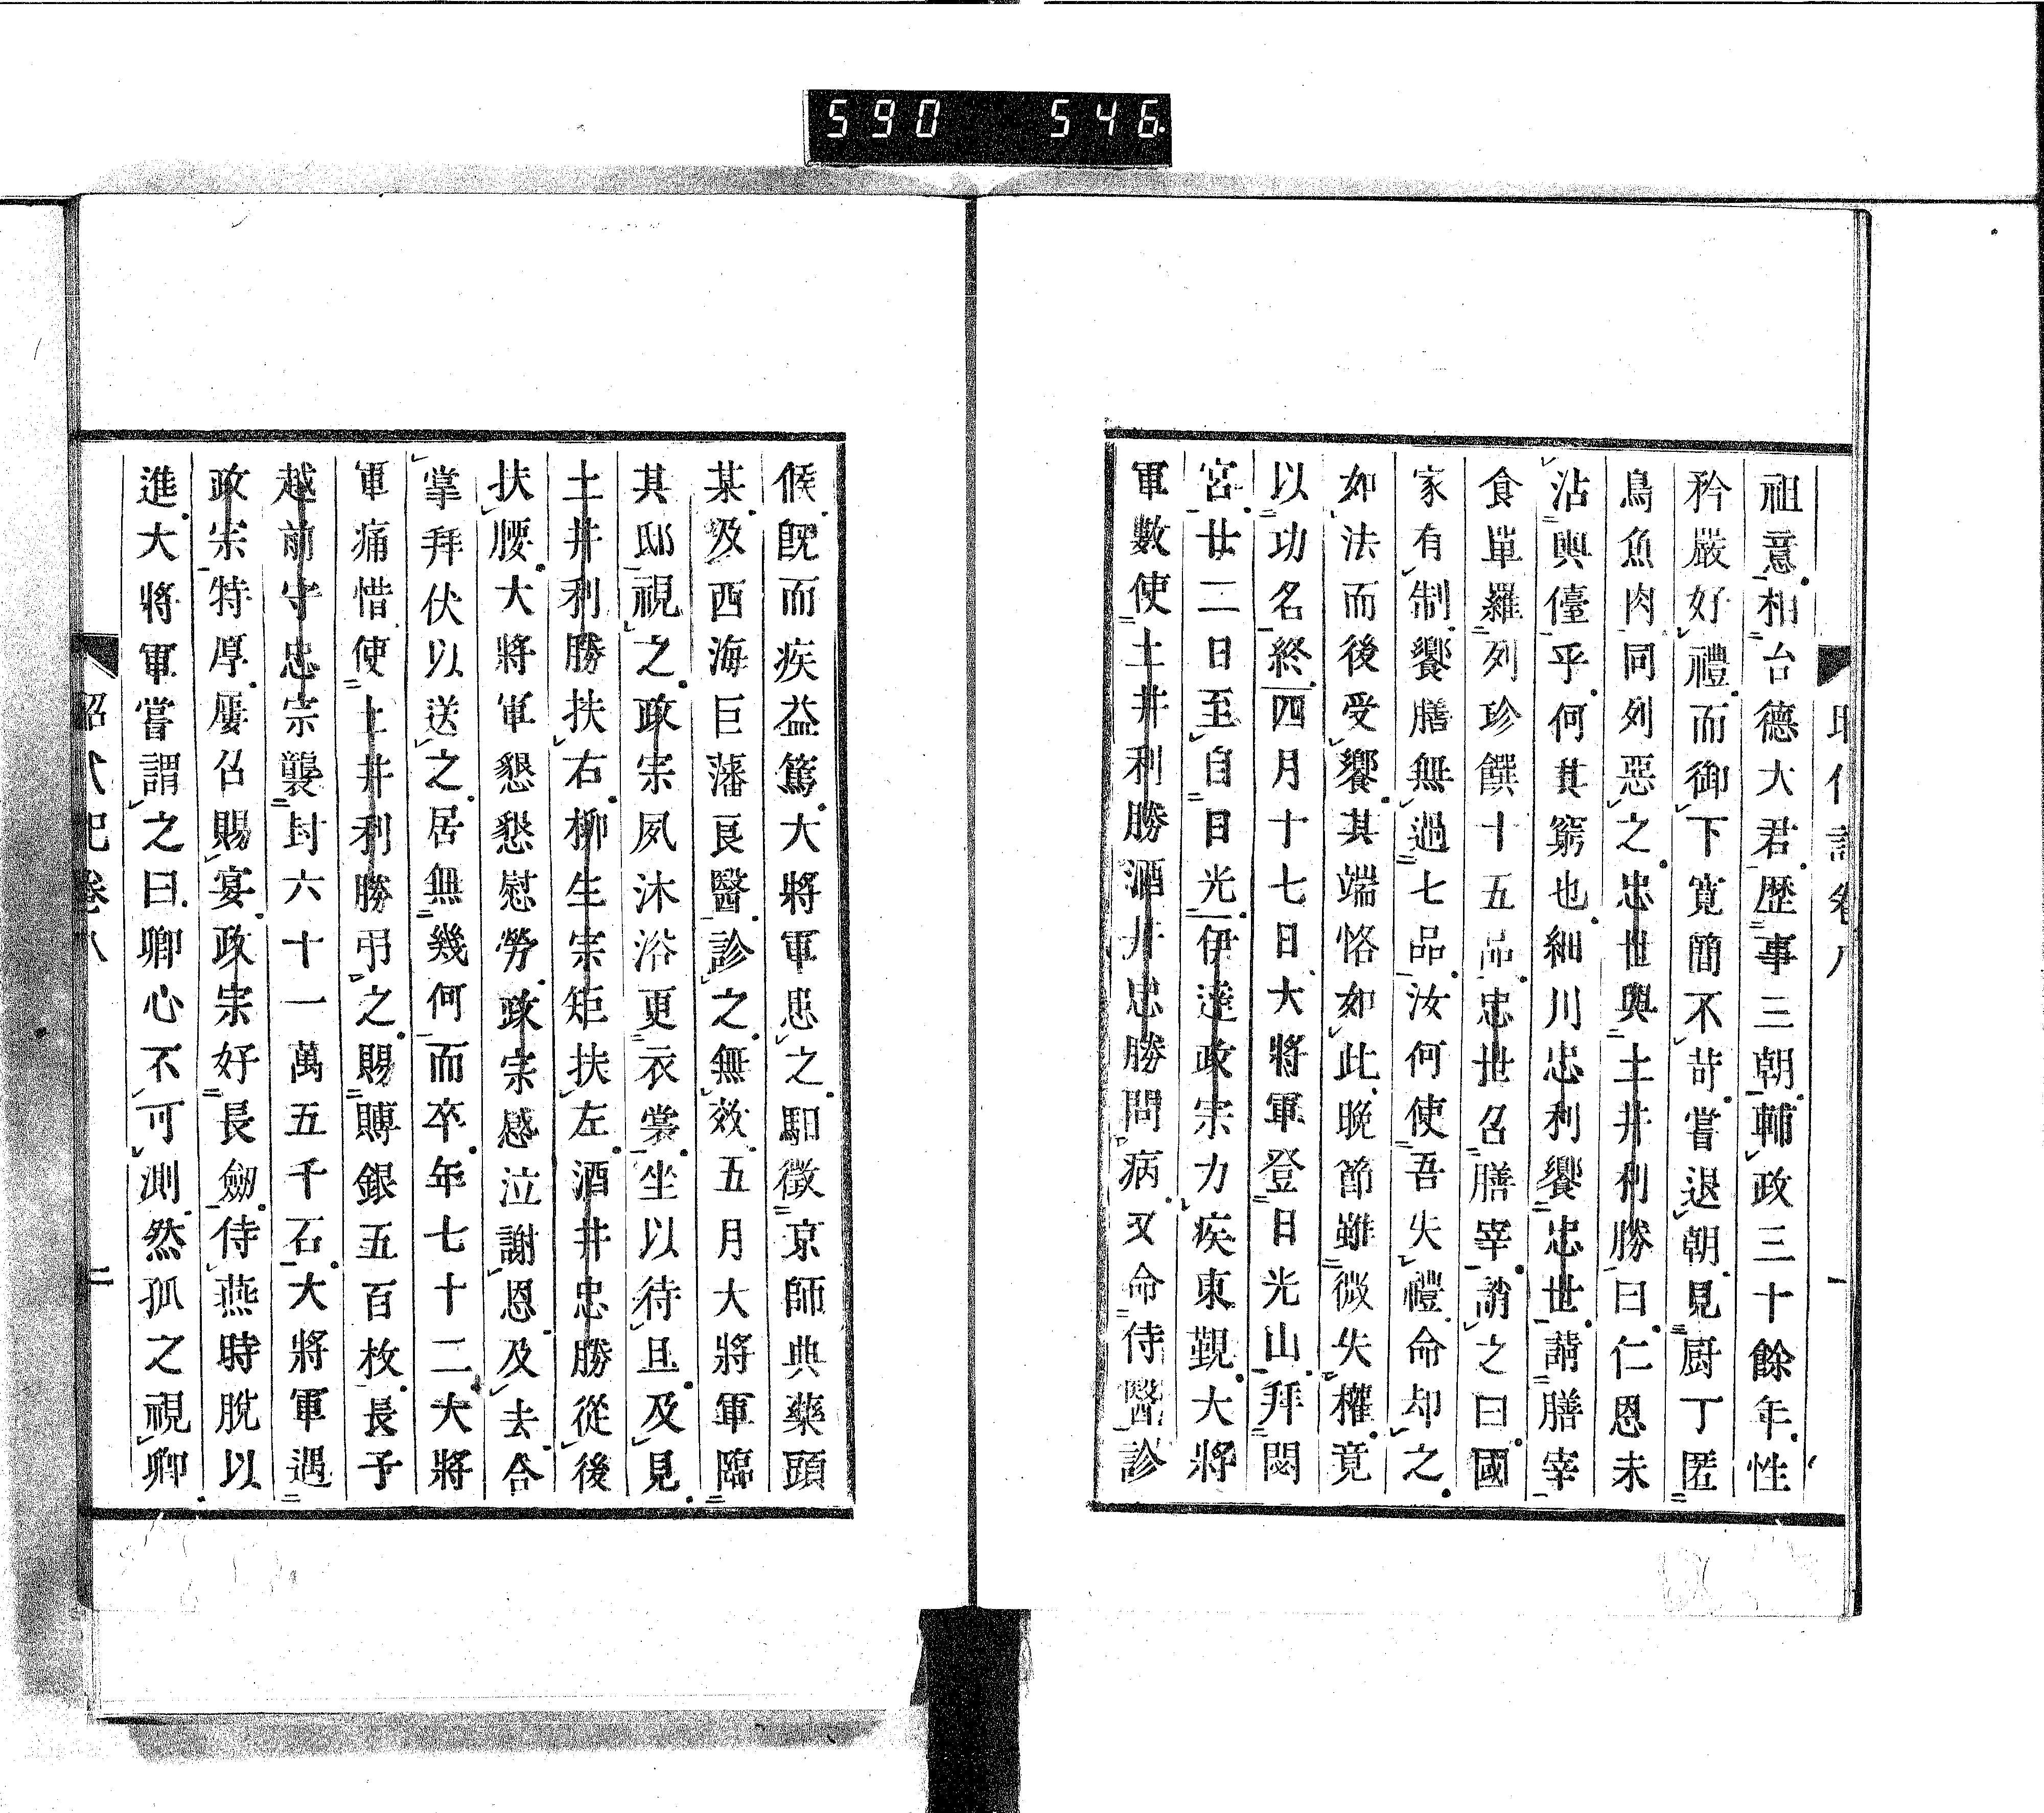 590 546
祖意相台德大君歷事三朝輔政三十餘年性
矜嚴好禮而御下寬簡不苛嘗退朝見厨丁匿
鳥魚肉同列惡之忠世與土井利勝曰仁恩未
沾輿儓乎何其窮也細川忠利饗忠世請膳宰
食單羅列珍饌十五品忠世召膳宰誚之曰國
家有制饗膳無過七品汝何使吾失禮命却之
如法而後受饗其端恪如此晚節雖微失權竟
以功名終四月十七日大將軍登日光山拜閟
宮廿二日至自日光伊達政宗力疾東覲大將
軍數使土井利勝酒井忠勝問病又命侍醫診
候既而疾益篤大將軍患之馹徵京師典藥頭
某及西海巨藩良醫診之無效五月大將軍臨
其邸視之政宗夙沐浴更衣裳坐以待旦及見
土井利勝扶右柳生宗矩扶左酒井忠勝從後
扶腰大將軍懇懇慰勞政宗感泣謝恩及去合
掌拜伏以送之居無幾何而卒年七十二大將
軍痛惜使土井利勝弔之賜賻銀五百枚長子
越前守忠宗襲封六十一萬五千石大將軍遇
政宗特厚屢召賜宴政宗好長劒侍燕時脫以
進大將軍嘗謂之曰卿心不可測然孤之視卿
昭代記卷八 二